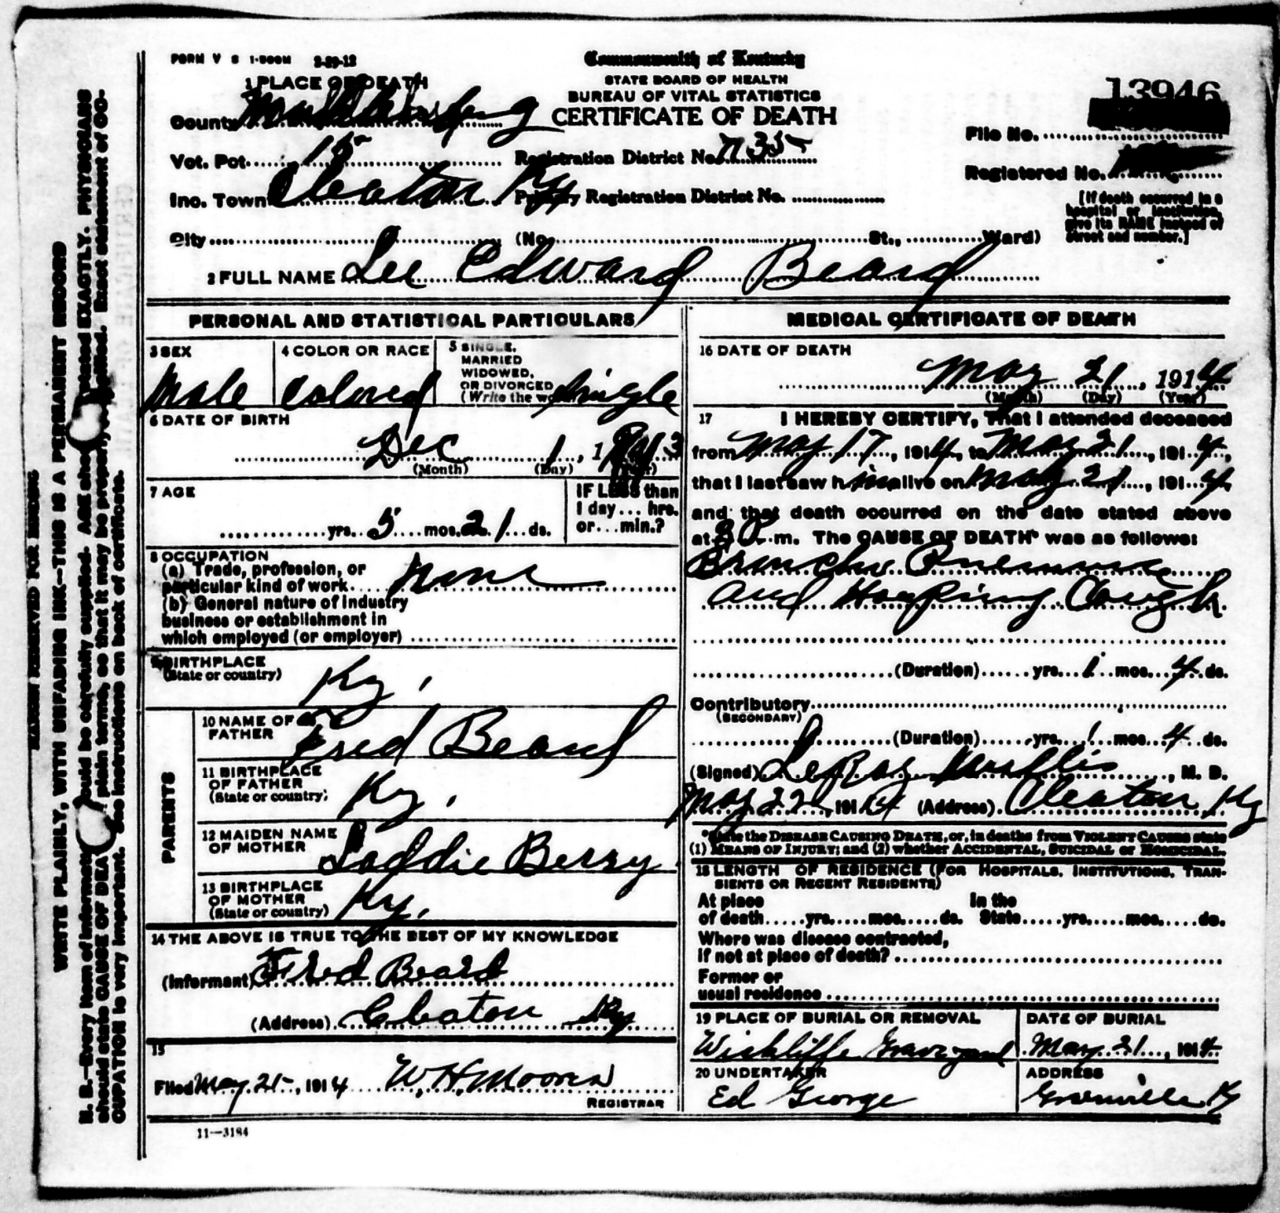 FORM V S 1-500M 3-29-12
Commonwealth of Kentucky
STATE BOARD OF HEALTH
BUREAU OF VITAL STATISTICS
CERTIFICATE OF DEATH
13946
1 PLACE OF DEATH
County Muhlenberg
File No.
Vot. Pct. 15 Registration District No. 735
Registered No.
Inc. Town Cleaton Ky Primary Registration District No.
[If death occurred in a
hospital or institution,
give its NAME instead of
street and number.]
City (No. St., Ward)
2 FULL NAME Lee Edward Beard
PERSONAL AND STATISTICAL PARTICULARS
3 SEX
Male
4 COLOR OR RACE
Colored
5 SINGLE,
MARRIED
WIDOWED,
OR DIVORCED
(Write the word) Single
6 DATE OF BIRTH
Dec 1, 1913
(Month) (Day) (Year)
7 AGE
yrs. 5 mos. 21 ds.
IF LESS than
1 day... hrs.
or... min.?
8 OCCUPATION
(a) Trade, profession, or
particular kind of work None
(b) General nature of industry
business or establishment in
which employed (or employer)
9 BIRTHPLACE
(State or country) Ky.
PARENTS
10 NAME OF
FATHER Fred Beard
11 BIRTHPLACE
OF FATHER
(State or country) Ky.
12 MAIDEN NAME
OF MOTHER Laddie Berry
13 BIRTHPLACE
OF MOTHER
(State or country) Ky.
14 THE ABOVE IS TRUE TO THE BEST OF MY KNOWLEDGE
(Informant) Fred Beard
(Address) Cleaton Ky
15
Filed May 21-, 1914 W. H. Moores
REGISTRAR
11—3184
MEDICAL CERTIFICATE OF DEATH
16 DATE OF DEATH
May 21, 1914
(Month) (Day) (Year)
17 I HEREBY CERTIFY, That I attended deceased
from May 17, 1914, to May 21, 1914,
that I last saw him alive on May 21, 1914,
and that death occurred on the date stated above
at 3 P. m. The CAUSE OF DEATH* was as follows:
Broncho Pneumonia
and Hooping Cough
(Duration) yrs. 1 mos. 4 ds.
Contributory
(SECONDARY)
(Duration) yrs. 1 mos. 4 ds.
(Signed) LeRoy , M. D.
May 22, 1914 (Address) Cleaton, Ky
*State the DISEASE CAUSING DEATH, or, in deaths from VIOLENT CAUSES state
(1) MEANS OF INJURY; and (2) whether ACCIDENTAL, SUICIDAL or HOMICIDAL.
18 LENGTH OF RESIDENCE (FOR HOSPITALS, INSTITUTIONS, TRAN-
SIENTS OR RECENT RESIDENTS)
At place In the
of death yrs. mos. ds. State yrs. mos. ds.
Where was disease contracted,
If not at place of death?
Former or
usual residence
19 PLACE OF BURIAL OR REMOVAL
Wickliffe Graveyard
DATE OF BURIAL
May 21, 1914
20 UNDERTAKER
Ed George
ADDRESS
Greenville Ky
MARGIN RESERVED FOR BINDING
WRITE PLAINLY, WITH UNFADING INK—THIS IS A PERMANENT RECORD
N. B.—Every item of information should be carefully supplied. AGE should be stated EXACTLY. PHYSICIANS
should state CAUSE OF DEATH in plain terms, so that it may be properly classified. Exact statement of OC-
CUPATION is very important. See instructions on back of certificate.